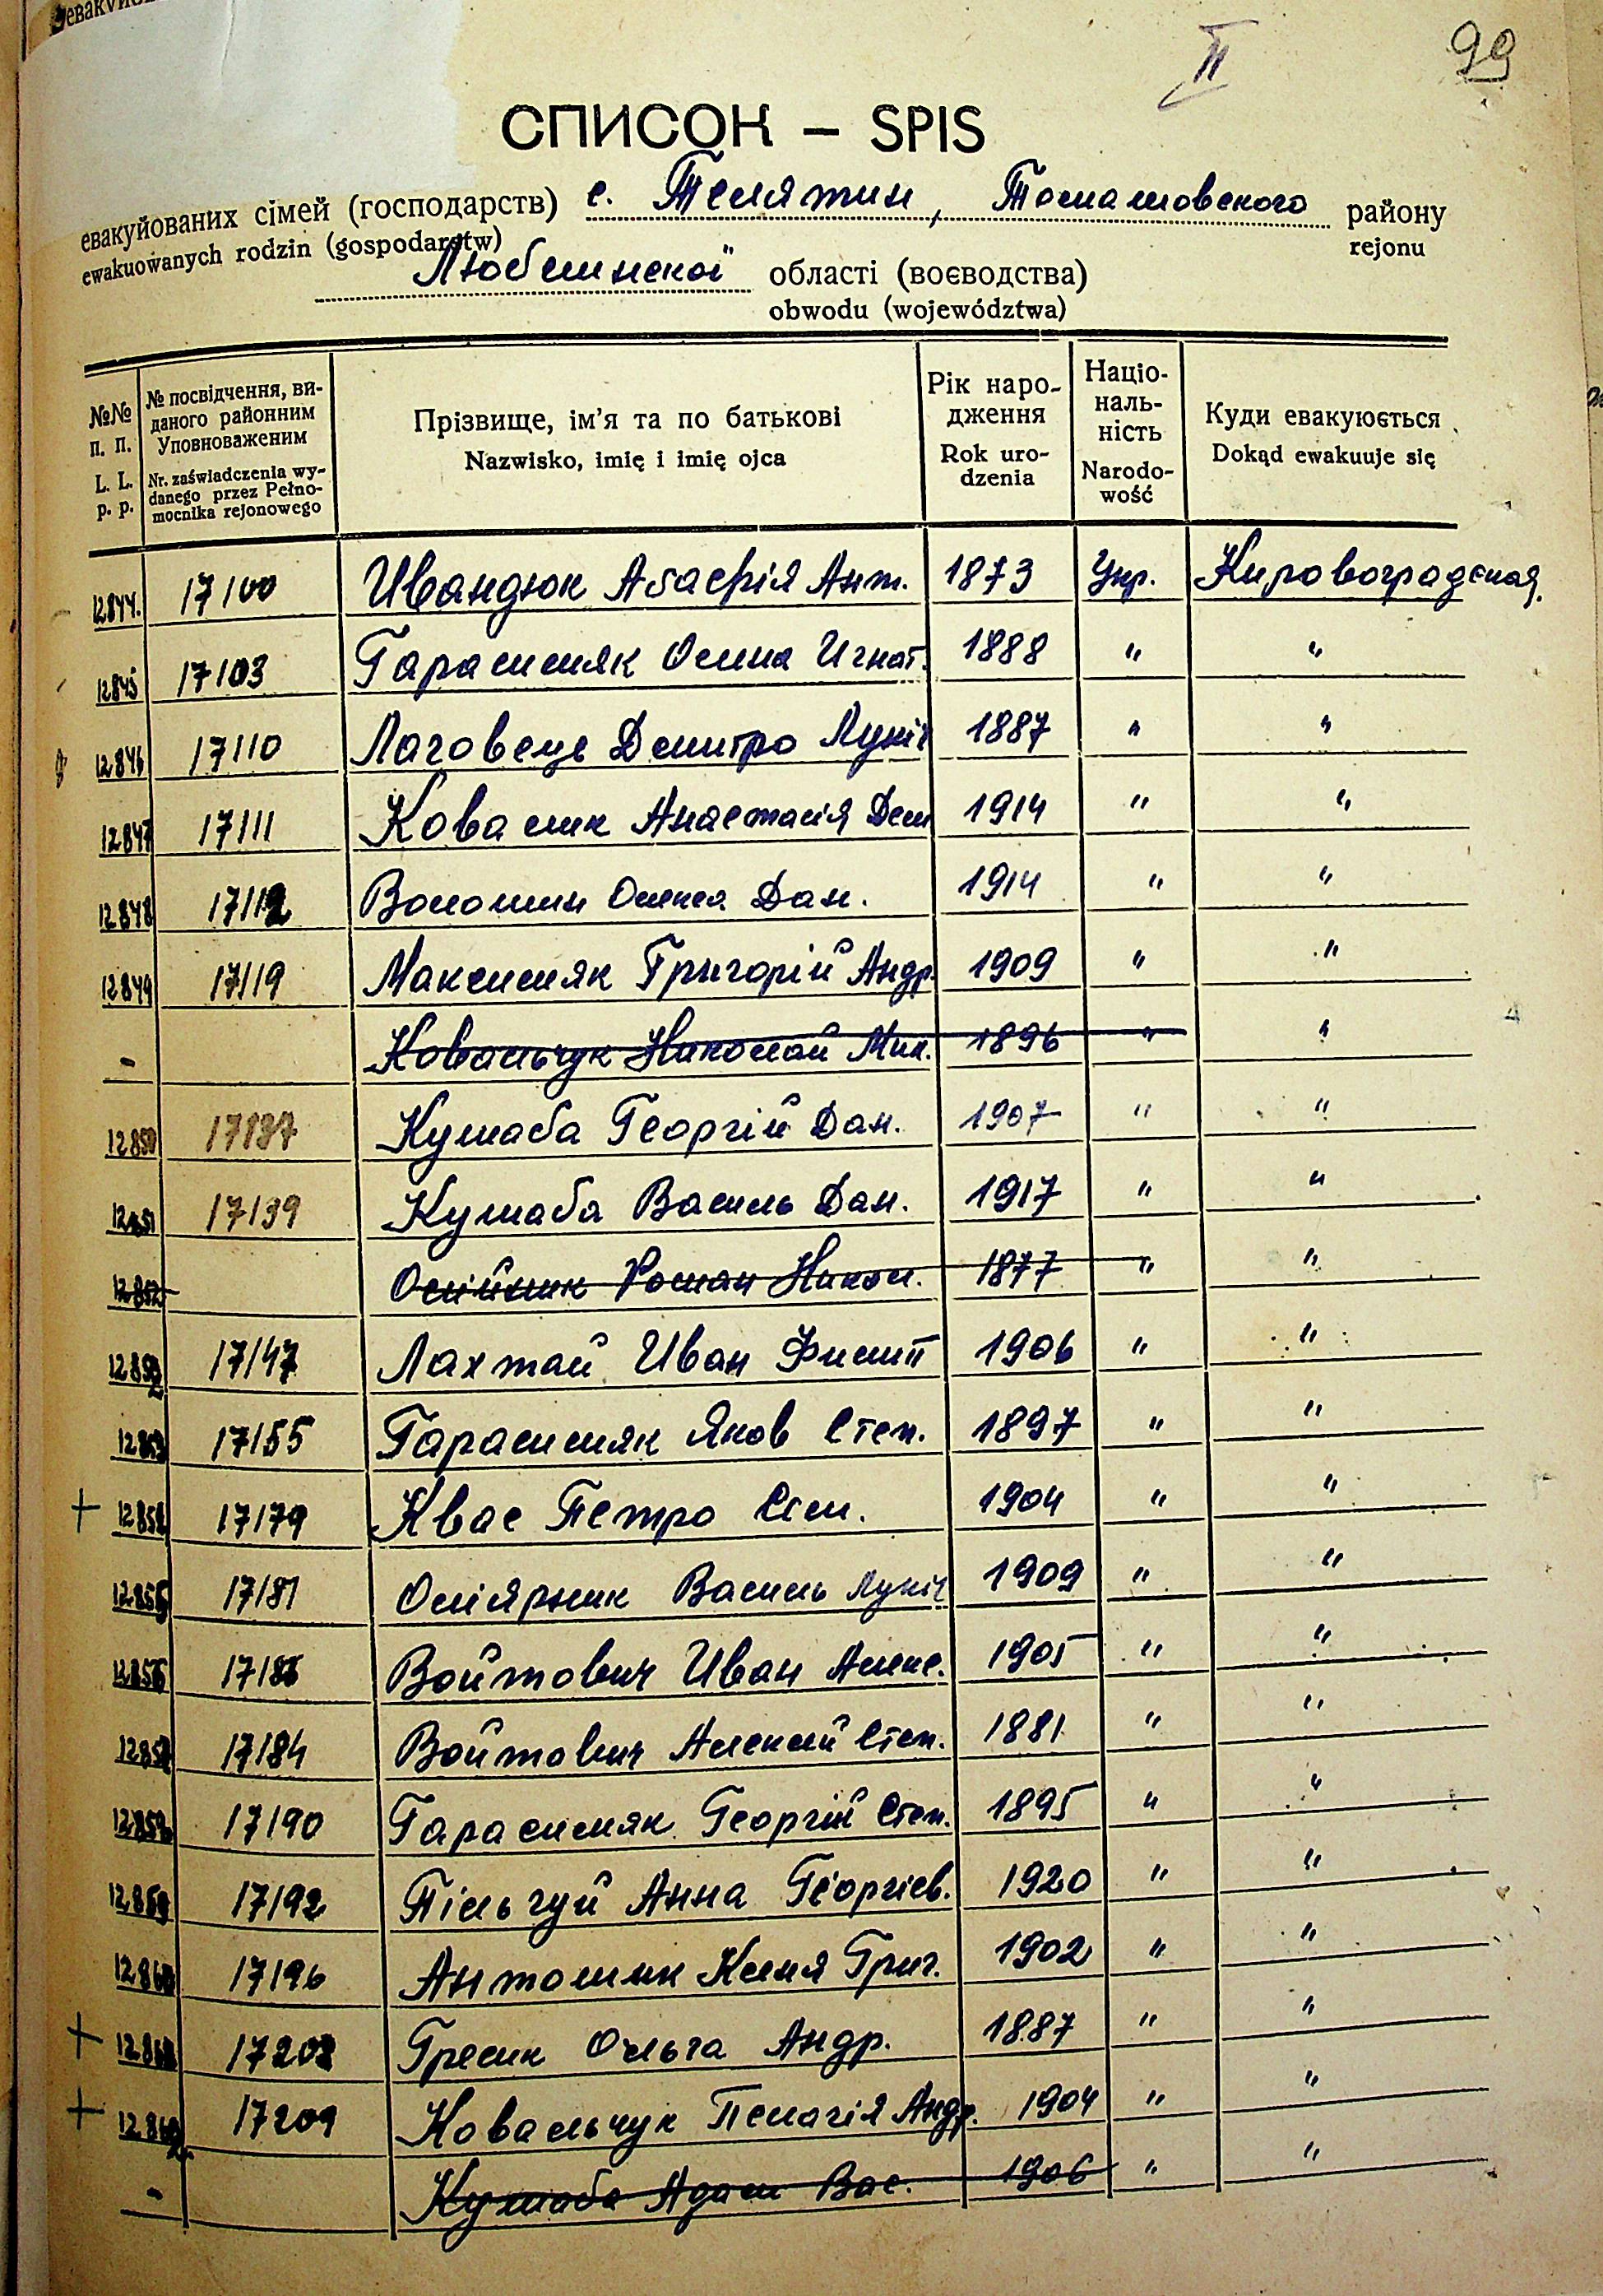 II 99
СПИСОК – SPIS
евакуйованих сімей (господарств) с. Телятин, Томашовского району
ewakuowanych rodzin (gospodarstw) rejonu
Люблинскої області (воєводства)
obwodu (województwa)
№№ п. п. L. L. p. p.
№ посвідчення, виданого районним Уповноваженим Nr. zaświadczenia wydanego przez Pełnomocnika rejonowego
Прізвище, ім'я та по батькові Nazwisko, imię i imię ojca
Рік народження Rok urodzenia
Національність Narodowość
Куди евакуюється Dokąd ewakuuje się
12844. 17100 Ивандюк Агафія Ант. 1873 Укр. Кировоградская
12845 17103 Гарасимяк Олина Игнат. 1888 " "
12846 17110 Лаговець Демитро Лукіч 1887 " "
12847 17111 Ковалик Анастасія Дем 1914 " "
12848 17112 Волошин Олекса Дан. 1914 " "
12849 17119 Максимяк Григорій Андр. 1909 " "
- Ковальчук Николай Мик. 1896 " "
12850 17137 Кушаба Георгій Дан. 1907 " "
12851 17139 Кушаба Василь Дан. 1917 " "
12852 Олійник Роман Никол. 1877 " "
17147 Лахтай Иван Филип 1906 " "
12853 17155 Гарасимяк Яков Степ. 1897 " "
+ 12854 17179 Квас Петро Сем. 1904 " "
12855 17181 Оліярник Василь Лукіч 1909 " "
12856 Войтович Иван Алекс. 1905 " "
12857 17184 Войтович Алексий Степ. 1881 " "
12858 17190 Гарасимяк Георгій Степ. 1895 " "
12859 17192 Пільчуй Анна Георгієв. 1920 " "
12860 17196 Антошик Ксеня Григ. 1902 " "
+ 12861 Гресик Ольга Андр. 1887 " "
+ 12862 17209 Ковальчук Пелагія Андр. 1904 " "
- Кушаба Адам Вас. 1906 " "